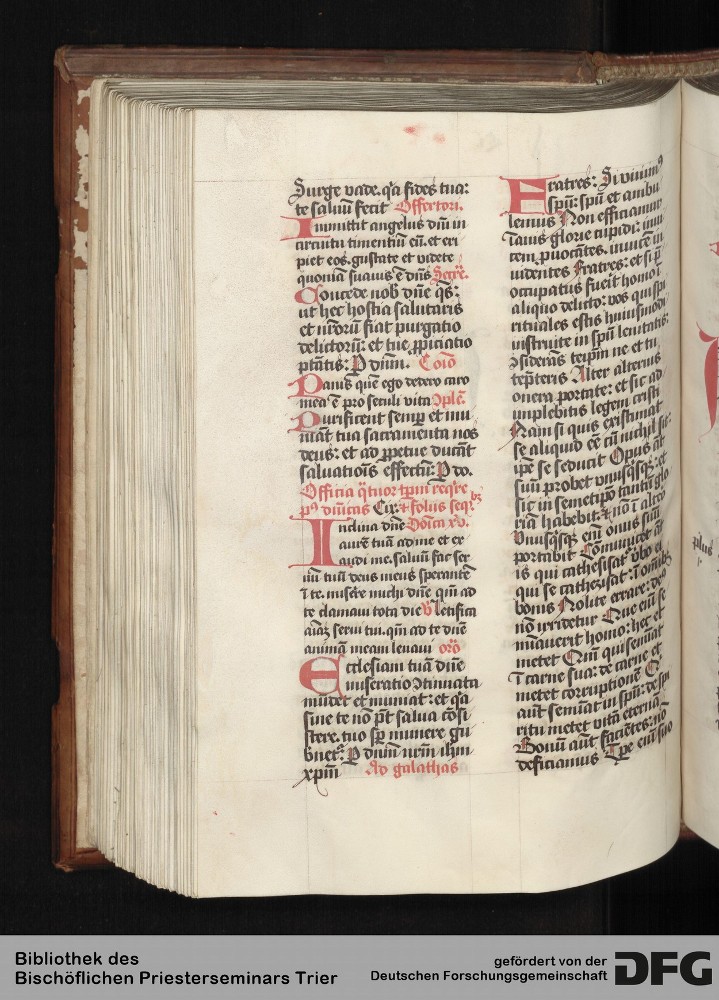 Surge vade. q̃a fides tua:
te saluū fecit Offertori.
Inmittit angelus dn̄i in
circuitu timentiū eū. et eri
piet eos. gustate et videte
quoniā suauis ē dn̄s Secre᷑.
Concede nob dn̄e q̄s:
ut hec hostia salutaris
et nr̄orū fiat purgatio
delictorū: et tue ꝓpiciatio
ptātis: P dn̄m. Coīo
Panis quē ego dedero caro
mea ē pro seculi vita Ↄplē.
Purificent semꝑ et mu
niāt tua sacramenta nos
deus: et ad ꝑpetue ducāt
saluationis effectū: P do.
Officia q̄tuor tꝑm req̄re
Cix. et solus seq̄.
Inclina dn̄e Dōica xv.
aurē tuā ad me et ex
audi me. saluū fac ser
uū tuū deus meus sperantē
ī te. miserē michi dn̄e qm̄ ad
te clamaui tota die V̄ letifica
aīaꝫ serui tui. qm̄ ad te dn̄e
animā meam leuaui orō
Ecclesiam tuā dn̄e
miseratio Ↄtinuata
mūdet et muniat: et q̄a
sine te nō pt̄ salua cōsi
stere. tuo sꝑ munere gu
bnet᷑. P dn̄m nr̄m ih̄m
xpm̄ Ad galathas
Fratres: Si viuim᷒
spū: spū et ambu
lemus Non efficiamur
īanis glorie cupidi: inui
cem ꝓuocātes. inuicē in
uidentes Fratres: et si p̄
occupatus fuerit homo ī
aliquo delicto: vos qui spi
rituales estis huiusmodi
instruite in spū lenitatis:
Ↄsiderās teip̄m ne et tu
tēpteris Alter alterius
onera portate: et sic ad
implebitis legem cristi
Nam si quis existimat
se aliquid eē cū nichil sit:
ip̄e se seducit Opus aūt
suū probet vnusq̄sqꝫ: et
sic in semetip̄o tantū glo
riā habebit: et nō ī altero
Vnusq̄sqꝫ enī onus suū
portabit Cōmunicet aūt
is qui cathesisat᷑ v̄bo ei
qui se cathezisat: ī om̄ibꝫ
bonis Nolite errare: de᷒
nō irridetur Que enī se
mīauerit homo: hec et
metet Qm̄ qui semīat
ī carne sua: de carne et
metet corruptionē Q
aūt semīat in spū: de spi
ritu metet vitā eternā
Bonū aūt faciētes: nō
deficiamus Tꝑe enī suo
plus
Bibliothek des
Bischöflichen Priesterseminars Trier
gefördert von der
Deutschen Forschungsgemeinschaft
DFG